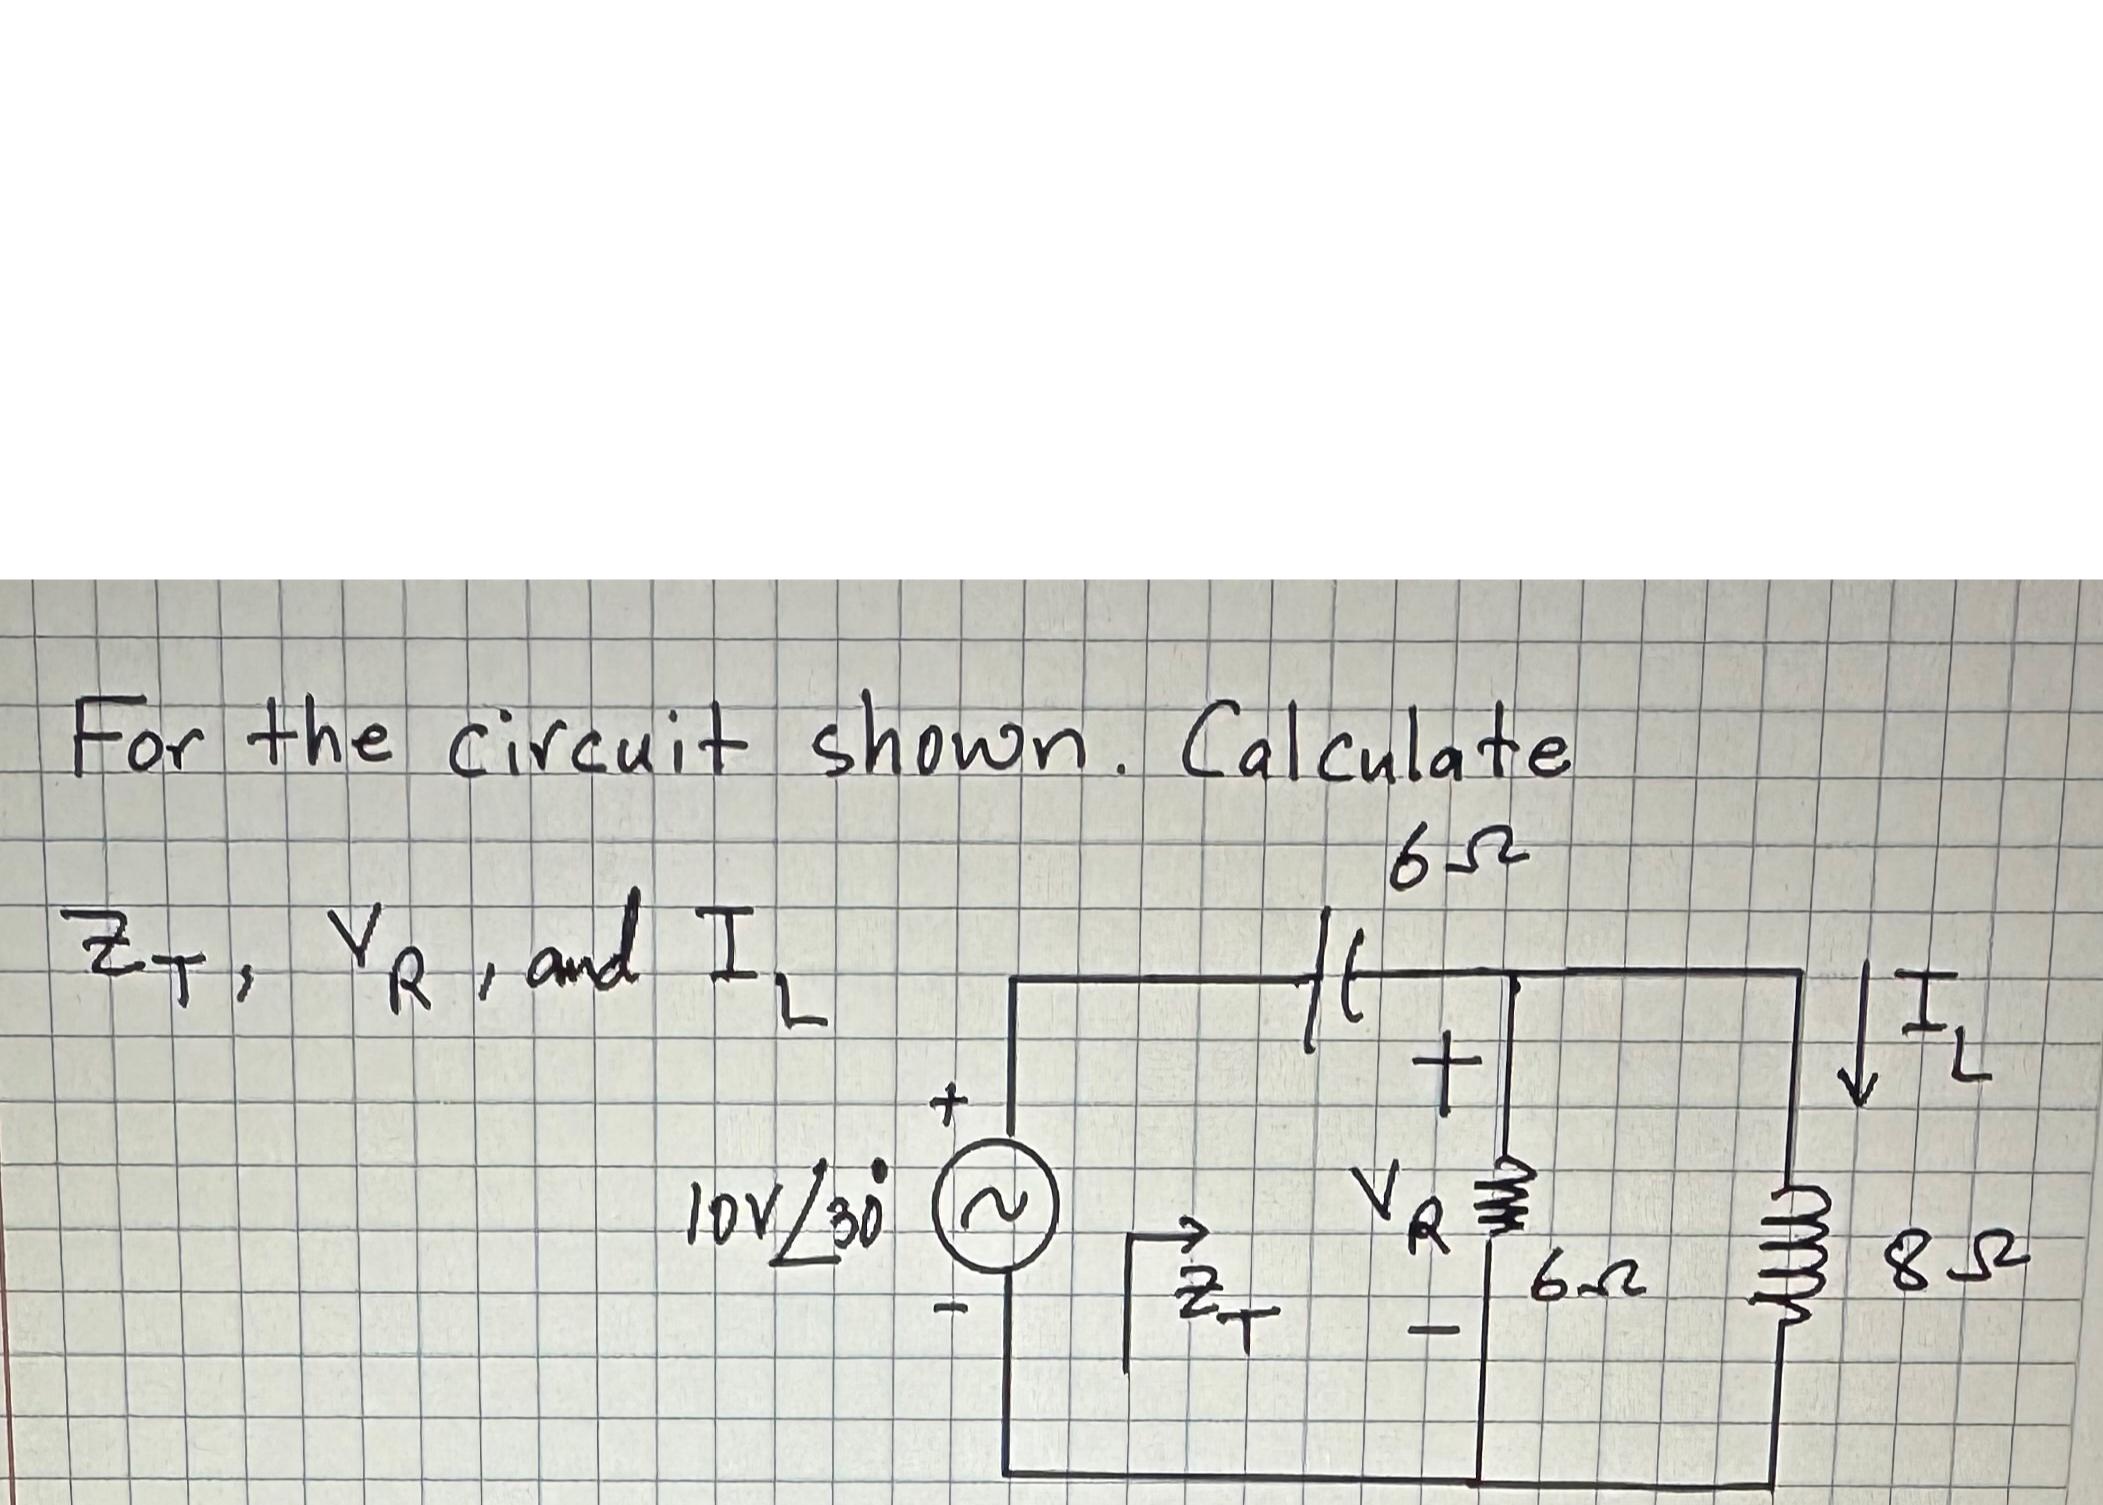 For the circuit shown. Calculate
6Ω
Z_T, V_R, and I_L
I_L
+
+
10V∠30°
V_R
6Ω
8Ω
Z_T
-
-